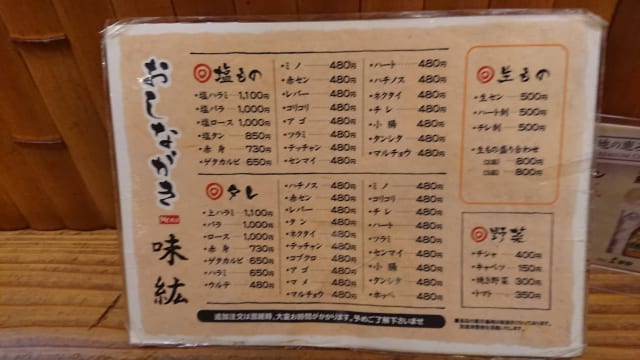 おしながき
MENU
味紘
塩もの
・塩ハラミ 1,100円
・塩バラ 1,000円
・塩ロース 1,000円
・塩タン 850円
・赤身 730円
・ゲタカルビ 650円
・ミノ 480円
・赤セン 480円
・レバー 480円
・コリコリ 480円
・アゴ 480円
・ツラミ 480円
・テッチャン 480円
・センマイ 480円
・ハート 480円
・ハチノス 480円
・ネクタイ 480円
・チレ 480円
・小腸 480円
・タンシタ 480円
・マルチョウ 480円
タレ
・上ハラミ 1,100円
・バラ 1,000円
・ロース 1,000円
・赤身 730円
・ゲタカルビ 650円
・ハラミ 650円
・ウルテ 480円
・ハチノス 480円
・赤セン 480円
・レバー 480円
・タン 480円
・ネクタイ 480円
・テッチャン 480円
・コブクロ 480円
・アゴ 480円
・マメ 480円
・マルチョウ 480円
・ミノ 480円
・コリコリ 480円
・チレ 480円
・ハート 480円
・ツラミ 480円
・センマイ 480円
・小腸 480円
・タンシタ 480円
・ホッペ 480円
追加注文は混雑時、大変お時間がかかります。予めご了解下さいませ
生もの
・生セン 500円
・ハート刺 500円
・チレ刺 500円
・生もの盛り合わせ
800円
800円
野菜
・チシャ 400円
・キャベツ 150円
・焼き野菜 300円
・トマト 350円